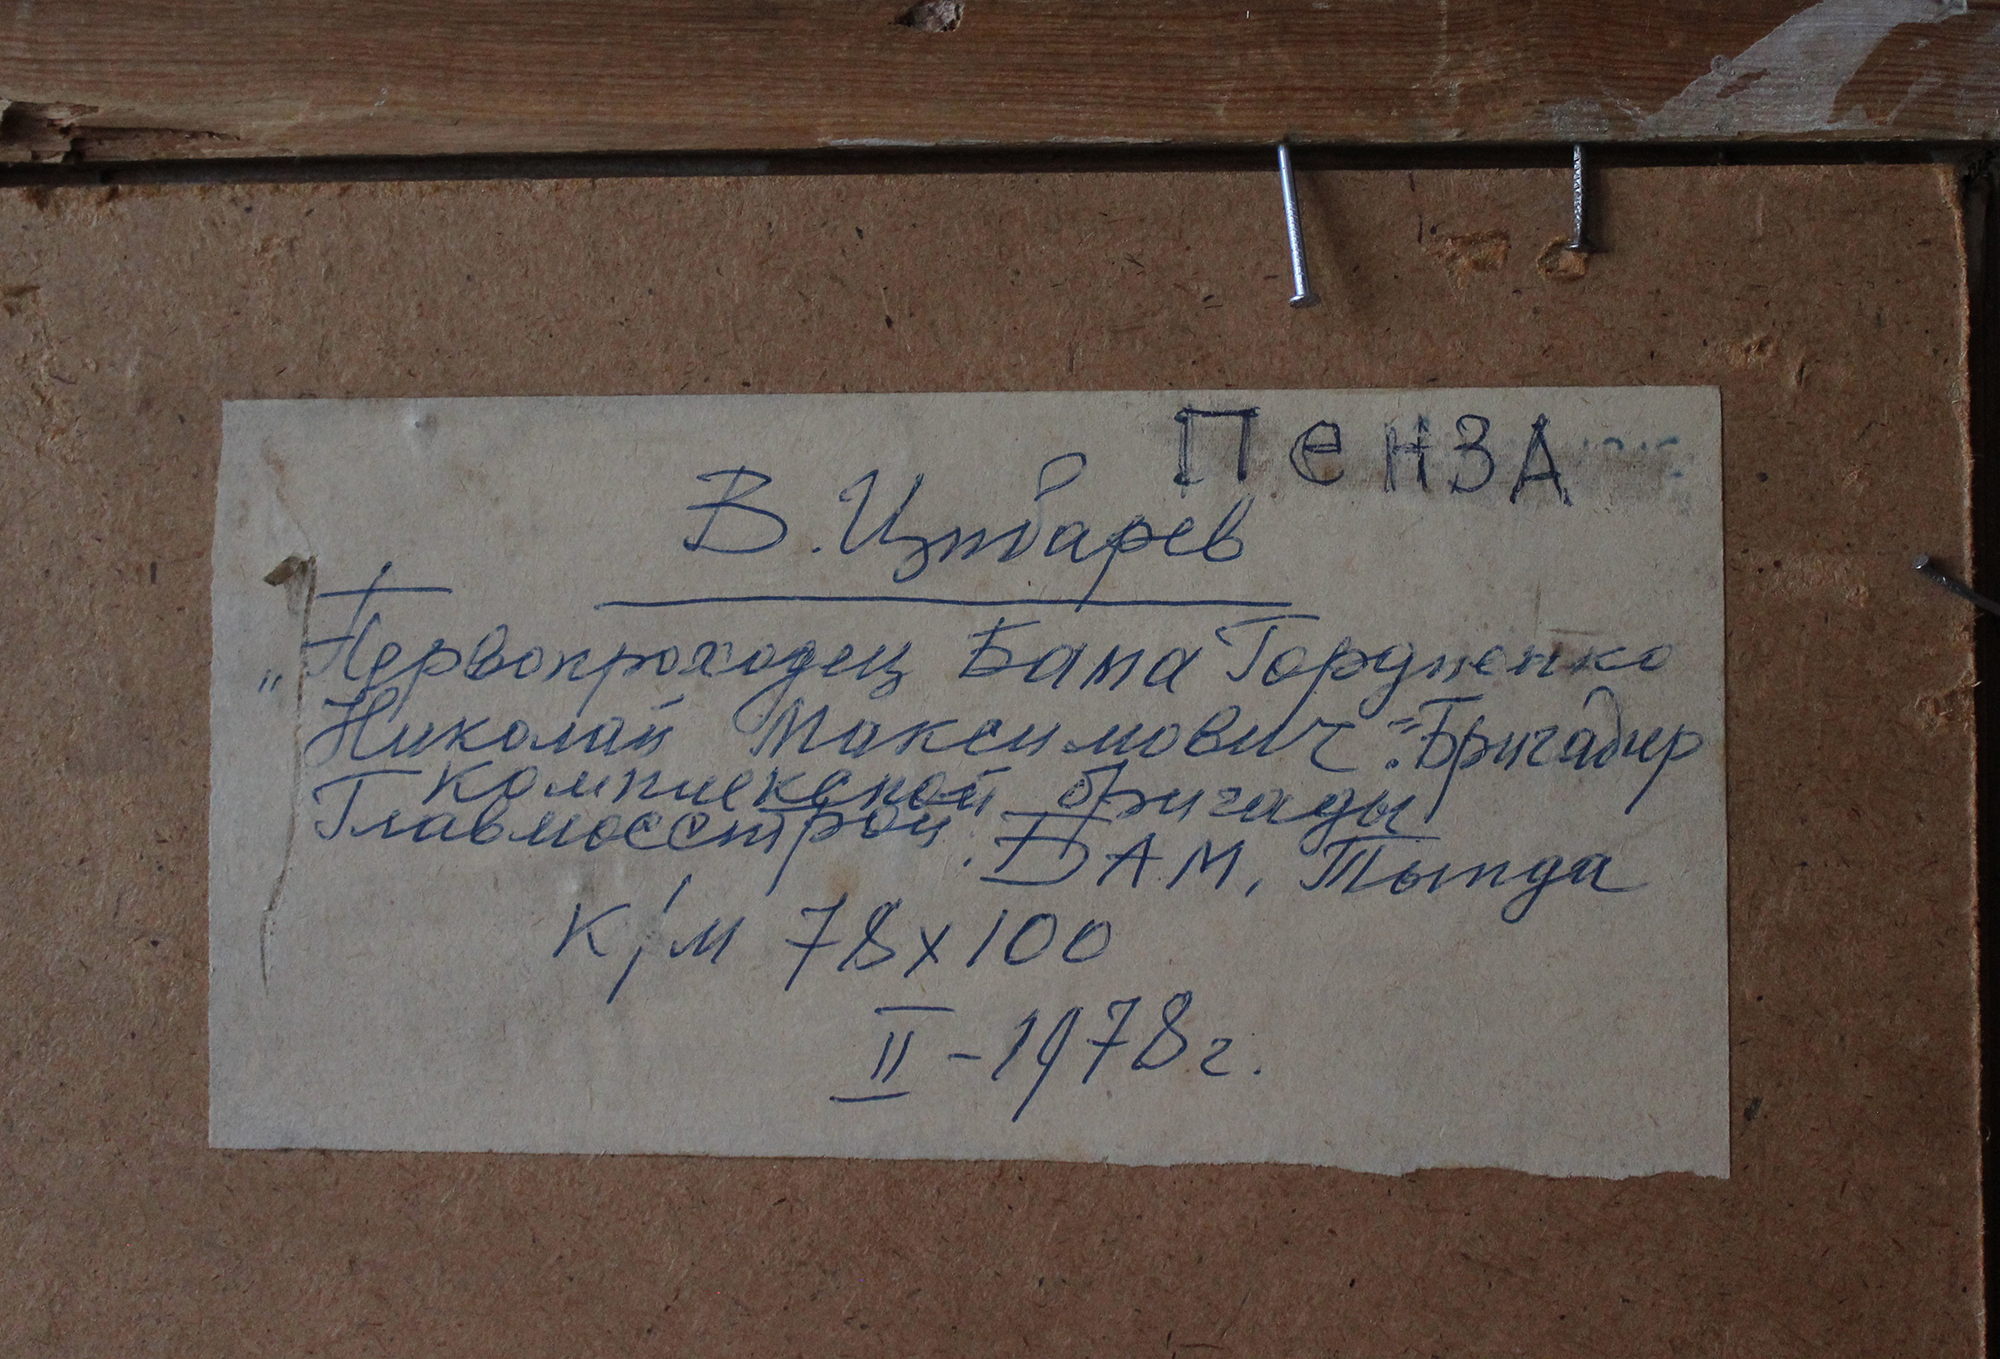 Пенза
В. Цтбарев
„Первопроходец Бама Гордиенко
Николай Максимович". Бригадир
комплексной бригады
Главмосстрой. БАМ, Тында
К/М 78х100
II – 1978 г.